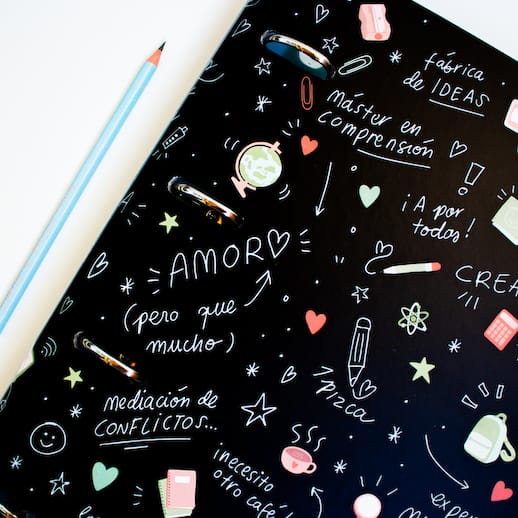 fábrica
de IDEAS
máster en
comprensión
¡A por
todas!
AMOR
(pero que
mucho)
CREA
TIZICA
mediación de
CONFLICTOS...
¡necesito
otro café